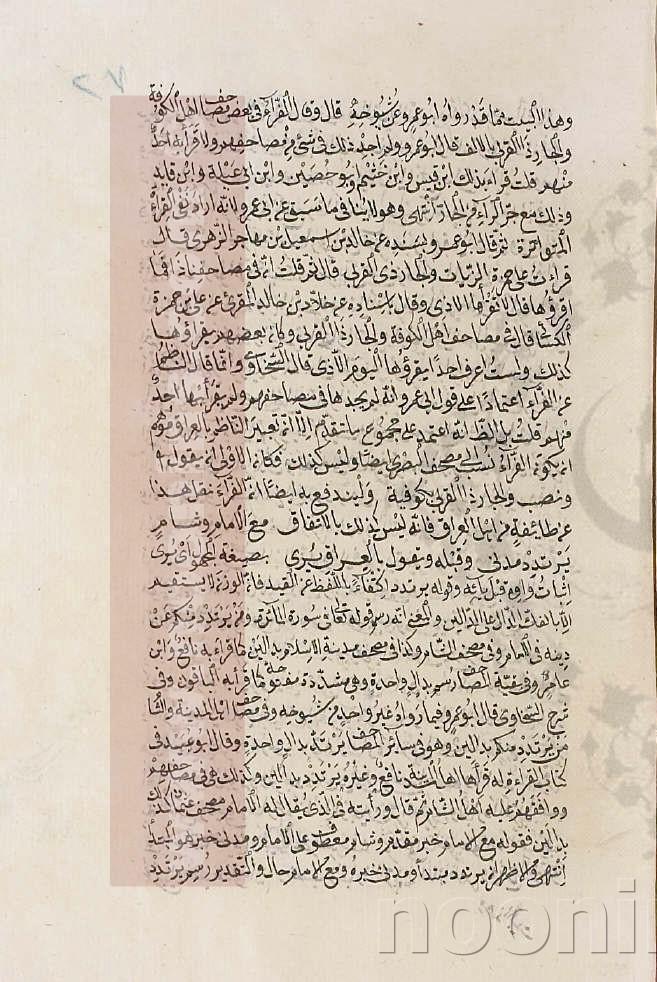 ٧٢
وهذا البيت مما قد رواه ابو عمرو عن شيوخه قال وقال الفراء في بعض مصاحف اهل الكوفة
والجار ذا القربى بالالف قال ابو عمرو ولم اجد ذلك في شئ من مصاحفهم ولا قرأ به احد
منهم قلت قراءة بذلك ابن قيس وابن خثيم وابو حصين وابن ابى عبلة وابن قايد
وذلك مع جر الراء في الجار انتهى وهو لا ينافى ما سبق عن ابى عمرو لانه اراد نفى القراءة
المتواترة ثم قال ابو عمرو بسنده عن خالد بن اسمعيل بن مهاجر الزهرى قال
قرأت على حمزة الزيات والجار ذى القربى قال ثم قلت انه في مصاحفنا ذا فما
اقرؤها قال لا تقرأها الا ذى وقال باسناده عن خلاد بن خالد المقرئ عن على بن حمزة
الكسائى قال في مصاحف اهل الكوفة والجار ذا القربى وكان بعضهم يقرؤها
كذلك ولست اعرف احدا يقرؤها اليوم الا ذى قال السخاوى وانما قال الناظم
عن الفراء اعتمادا على قول ابى عمرو انه لم يجدها في مصاحفهم ولم يقرأ بها احد
منهم قلت بل الظ انه اعتمد على مجموع ما تقدم الا ان تعبير الناظم بالعراق موهم
ان يكون الفراء نسب الى مصحف البصرى ايضا وليس كذلك فكان الاولى ان يقول
ونصب والجار ذا القربى بكوفية وليندفع به ايضا ان الفراء نقل هذا
عن طايفة من اهل العراق فانه ليس كذلك بالاتفاق مع الامام وشام
يرتدد مدنى وقبله ويقول بالعراق يرى بصيغة المجهول اى يرى
اثبات واوه قبل يائه وقوله يرتدد اكتفاء باللفظ عن القيد فان الوزن لا يستقيم
الا بالفك الدال على الدالين والمعنى انه رسم قوله تعالى في سورة المائدة ومن يرتدد منكم عن
دينه في الامام وفي مصحف الشام وكذا في مصحف مدينة الاسلام بدالين كما قراء به نافع وابن
عامر وفي بقية المصاحف رسم بدال واحدة وهى مشددة مفتوحة كما قرأ به الباقون وفي
شرح السخاوى قال ابو عمرو فيما رواه غير واحد من شيوخه وفي مصاحف اهل المدينة والشام
من يرتدد منكم بدالين وهو في سائر المصاحف يرتد بدال واحدة وقال ابو عبيد في
كتاب القراءة له قرأها اهل المدينة نافع وغيره يرتدد بدالين وكذلك هى في مصاحفهم
ووافقهم عليه اهل الشام ثم قال ورأيته في الذى يقال له الامام مصحف عثمان كذلك
بدالين فقوله مع الامام خبر مقدم وشام معطوف على الامام ومدنى خبر هو المبتدأ
انتهى والاظهر ان يرتدد مبتدأ ومدنى خبره ومع الامام حال والتقدير رسم يرتدد
nooni